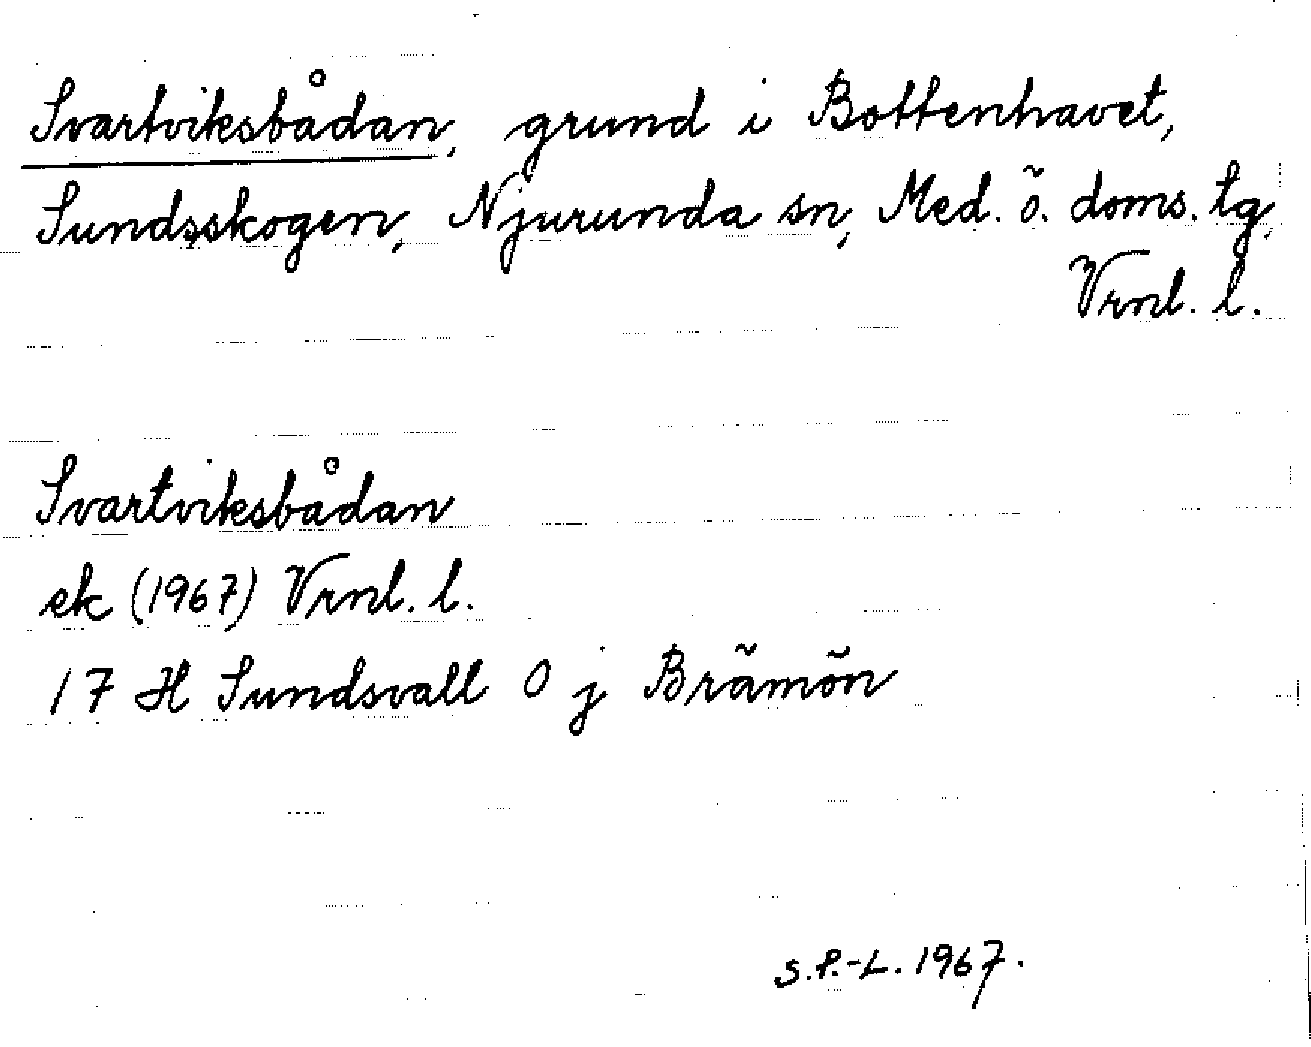 Svartviksbådan, grund i Bottenhavet,
Sundsskogen, Njurunda sn, Med. ö. doms. tg,
Vrnl. l.
Svartviksbådan
ek (1967) Vrnl. l.
17 H Sundsvall 0 j Brämön
S.P.-L. 1967.